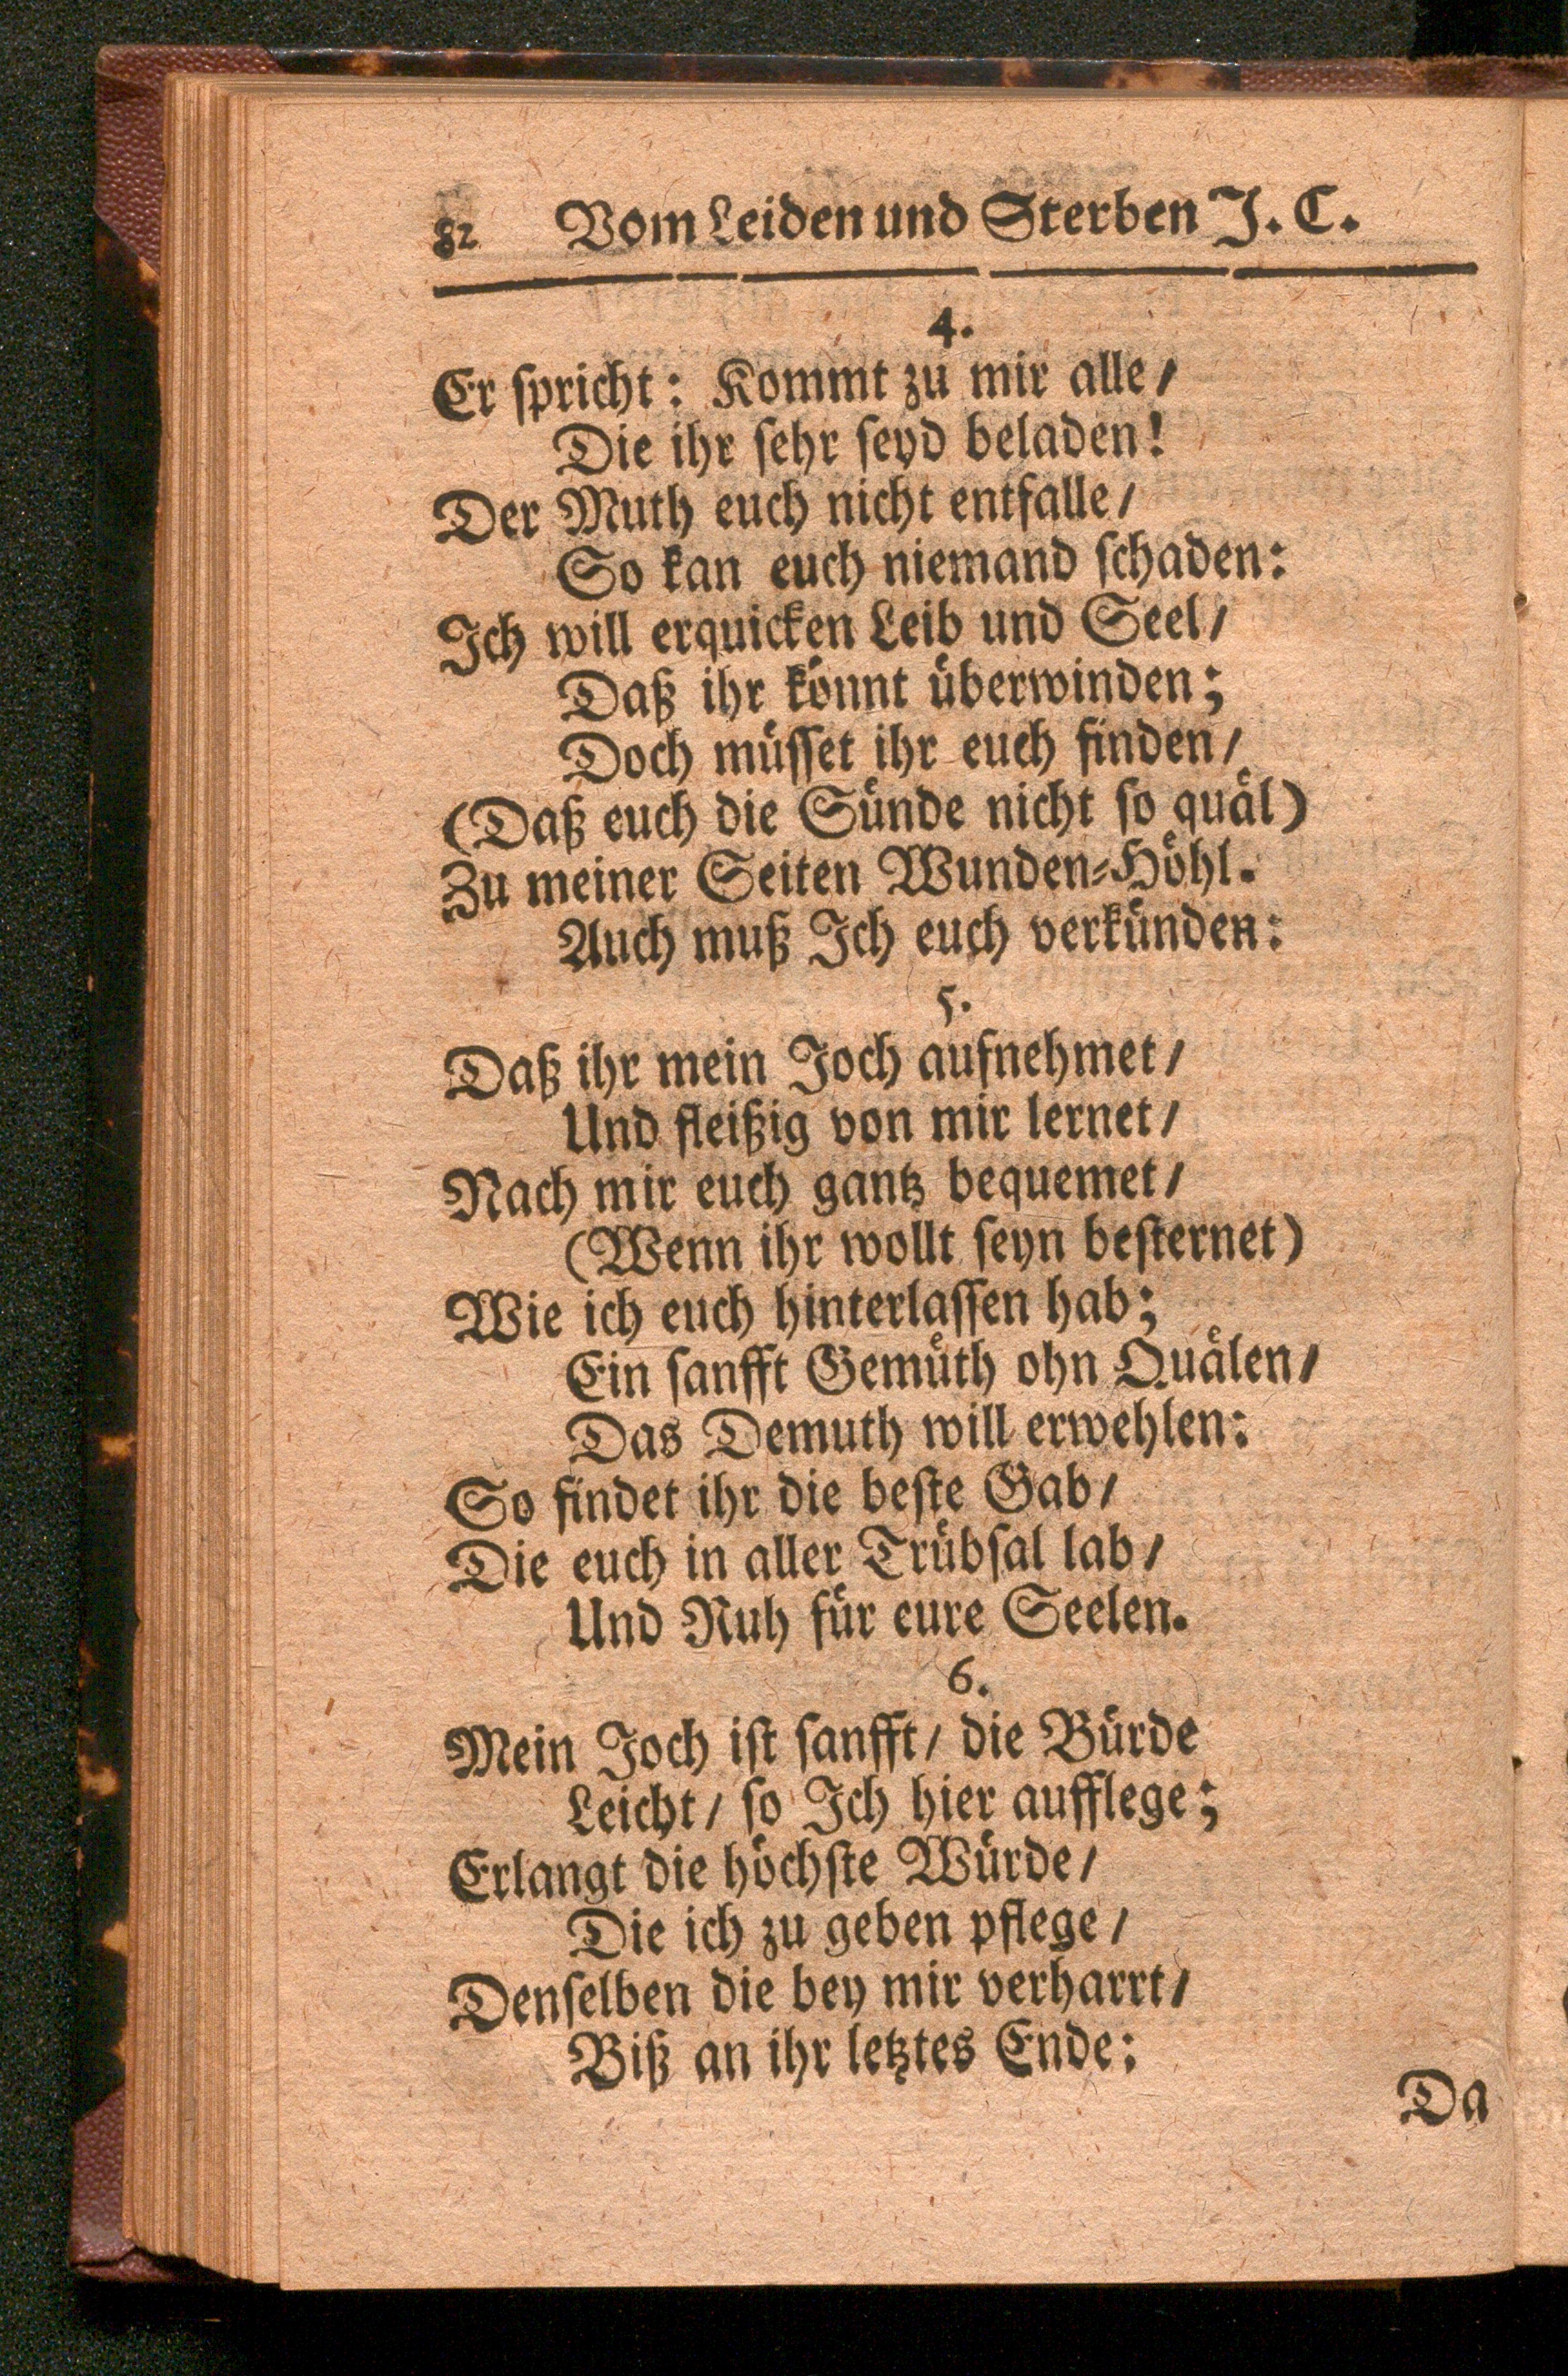 82 Vom Leiden und Sterben J. C.
4.
Er ſpricht: Kommt zu mir alle/
Die ihr ſehr ſeyd beladen!
Der Muth euch nicht entfalle/
So kan euch niemand ſchaden:
Ich will erquicken Leib und Seel/
Daß ihr koͤnnt uͤberwinden;
Doch muͤſſet ihr euch finden/
(Daß euch die Suͤnde nicht ſo quaͤl)
Zu meiner Seiten Wunden⸗Hoͤhl.
Auch muß Ich euch verkuͤnden:
5.
Daß ihr mein Joch aufnehmet/
Und fleißig von mir lernet/
Nach mir euch gantz bequemet/
(Wenn ihr wollt ſeyn beſternet)
Wie ich euch hinterlaſſen hab;
Ein ſanfft Gemuͤth ohn Quaͤlen/
Das Demuth will erwehlen:
So findet ihr die beſte Gab/
Die euch in aller Truͤbſal lab/
Und Ruh fuͤr eure Seelen.
6.
Mein Joch iſt ſanfft/ die Buͤrde
Leicht/ ſo Ich hier aufflege;
Erlangt die hoͤchſte Wuͤrde/
Die ich zu geben pflege/
Denſelben die bey mir verharrt/
Biß an ihr letztes Ende:
Da